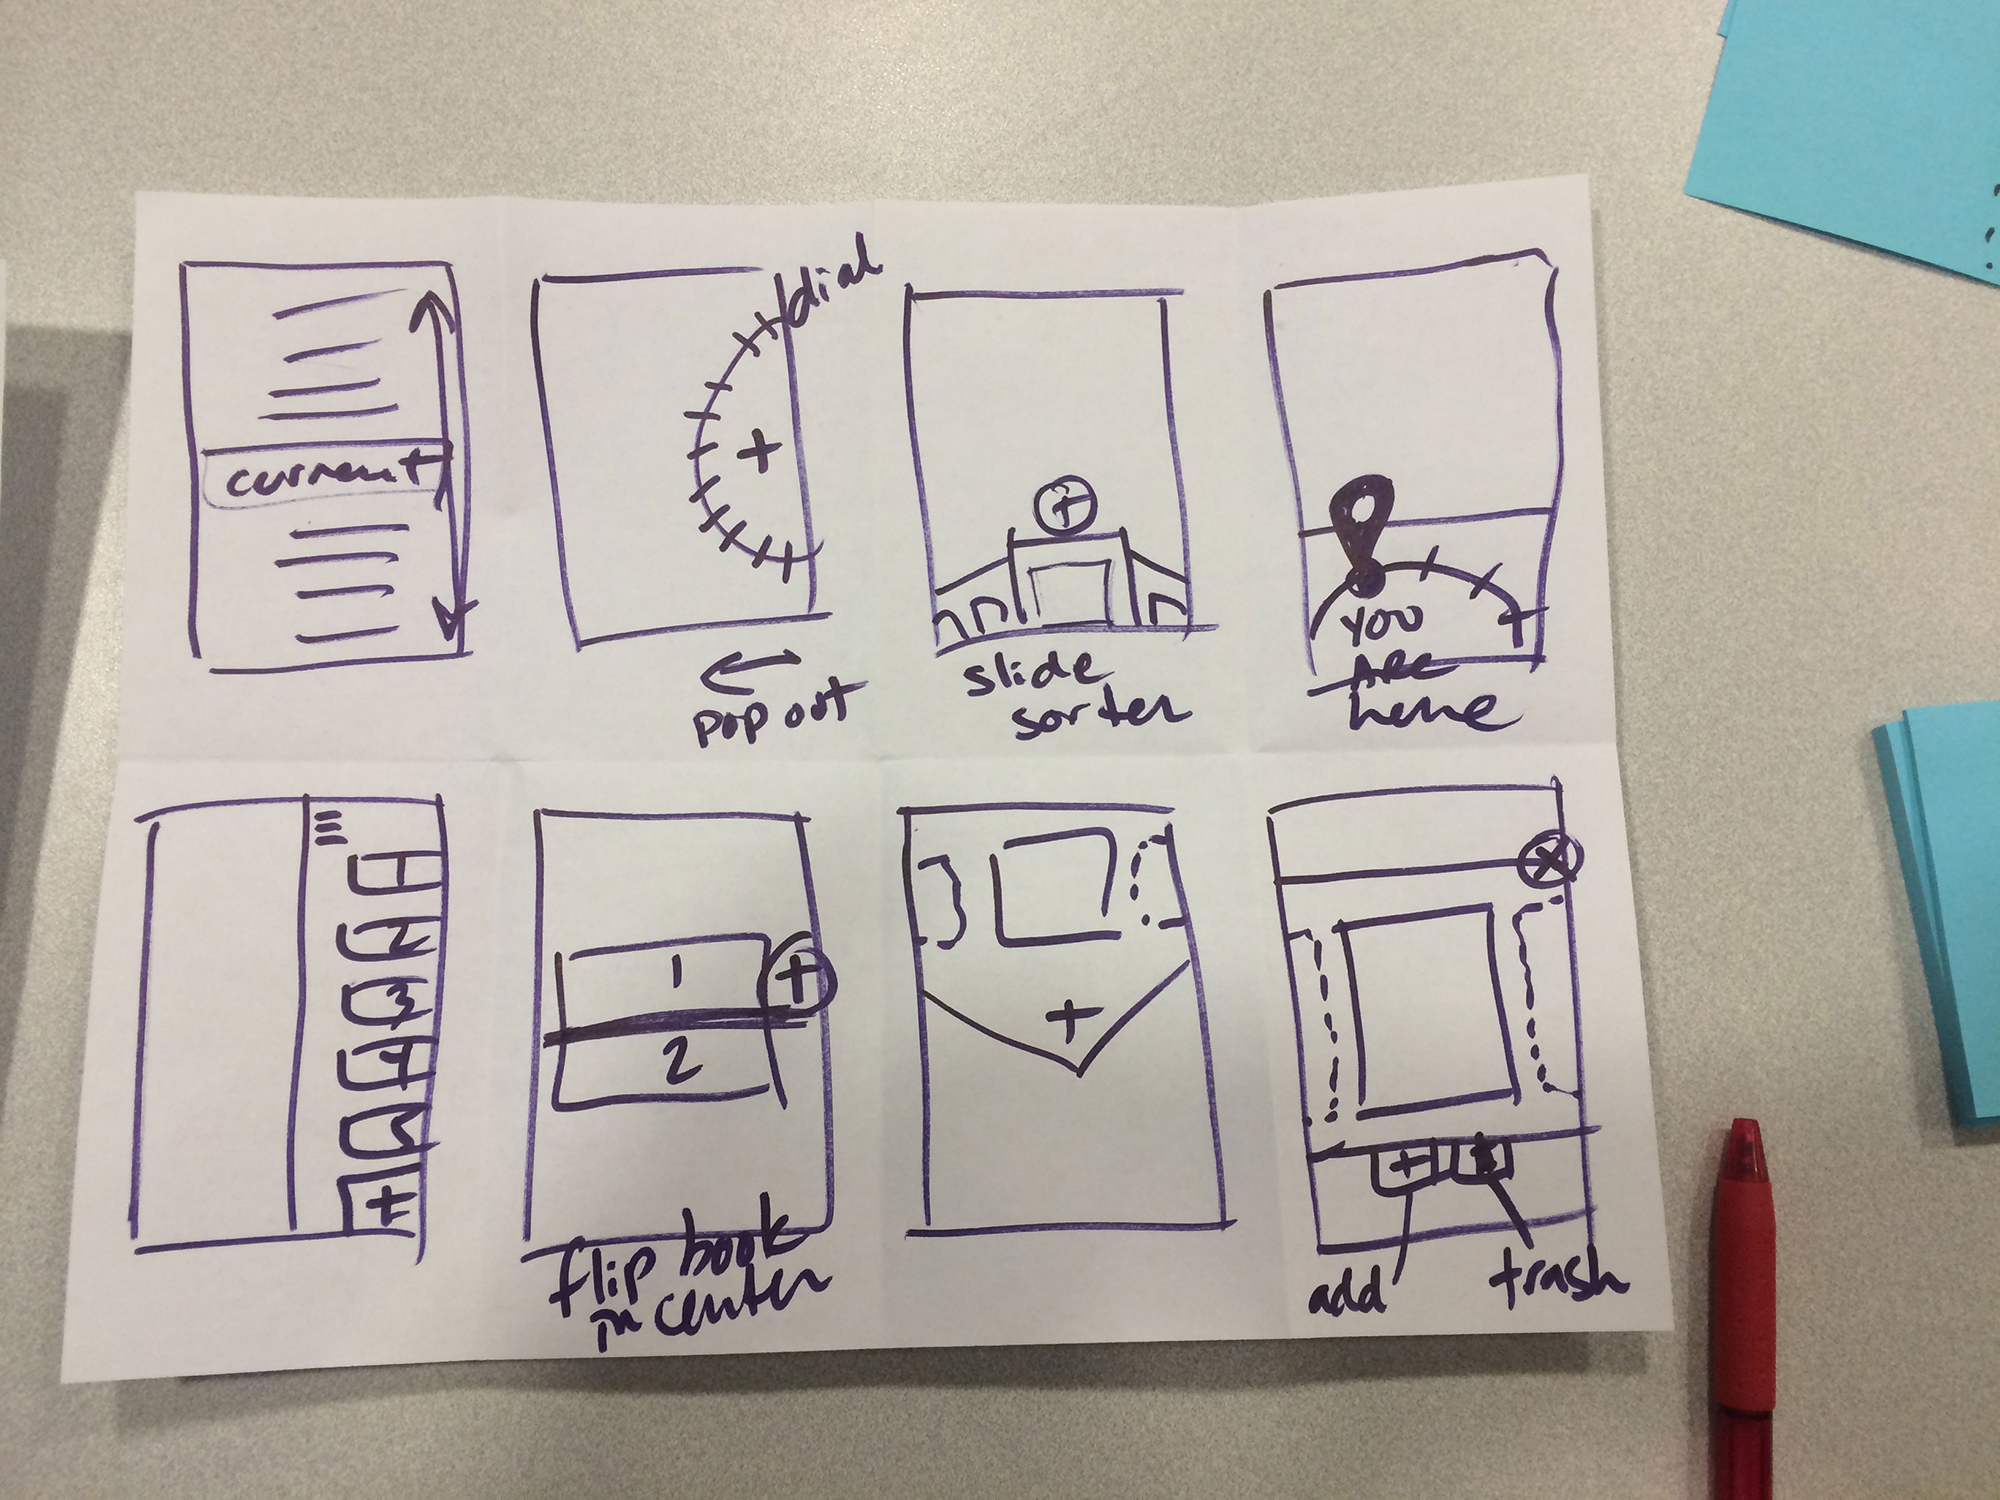 current
dial
+
pop out
+
slide
sorter
YOU
ARE
here
1
2
3
4
5
+
1
+
2
flip book
in center
+
X
+
add
trash